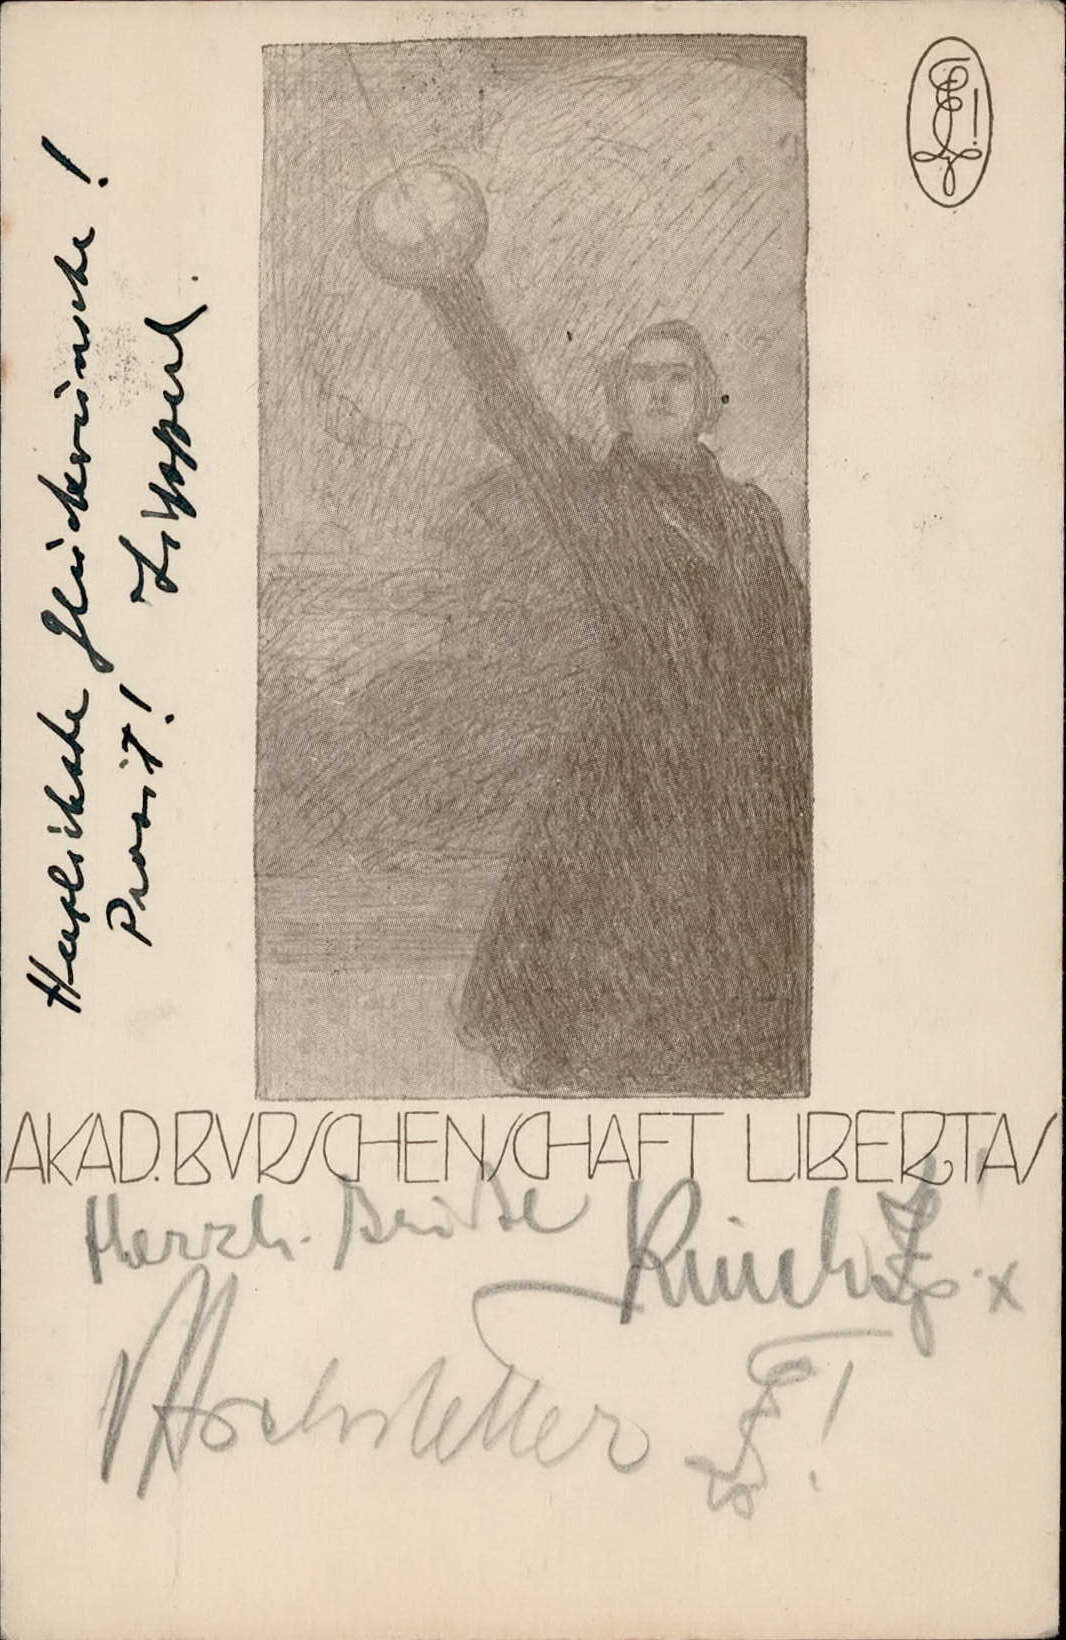 Herzlichste Glückwünsche !
Prosit !
AKAD. BVRSCHENSCHAFT LIBERTAS
Herzl. Grüße
Hochstetter